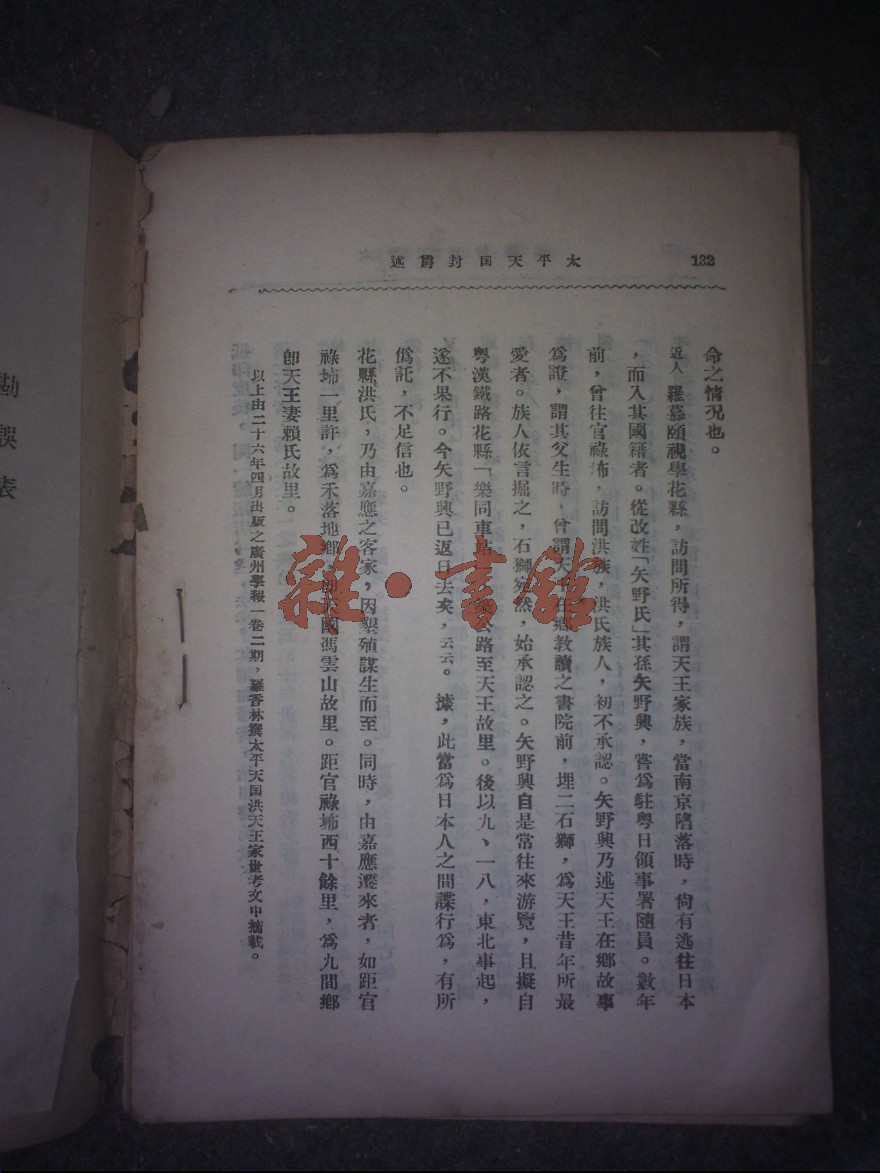 132
太平天国封爵述
命之情况也。
近人羅慕頤視學花縣，訪問所得，謂天王家族，當南京陷落時，尙有逃往日本
，而入其國籍者。從改姓「矢野氏」其孫矢野興，嘗爲駐粤日領事署隨員。數年
前，曾往官祿㘵，訪問洪族，洪氏族人，初不承認。矢野興乃述天王在鄉故事
爲證，謂其父生時，曾謂天王在鄉教讀之書院前，埋二石獅，爲天王昔年所最
愛者。族人依言掘之，石獅宛然，始承認之。矢野興自是常往來游覽，且擬自
粤漢鐵路花縣「樂同車站」 公路至天王故里。後以九、一八，東北事起，
遂不果行。今矢野興已返日去矣，云云。據，此當爲日本人之間諜行爲，有所
僞託，不足信也。
花縣洪氏，乃由嘉應之客家，因墾殖謀生而至。同時，由嘉應遷來者，如距官
祿㘵一里許，爲禾落地鄉， 天國馮雲山故里。距官祿㘵西十餘里，爲九間鄉
卽天王妻賴氏故里。
以上由二十六年四月出版之廣州學報一卷二期，羅香林撰太平天国洪天王家世考文中摘載。
勘誤表
雜·書館